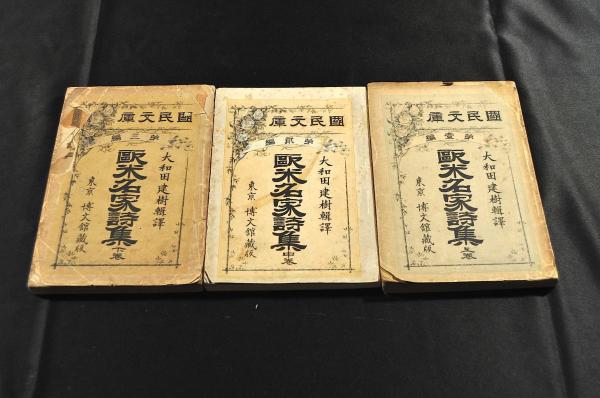 國民文庫
第壹編
大和田建樹輯譯
歐米名家詩集上卷
東京 博文館藏版
國民文庫
第貳編
大和田建樹輯譯
歐米名家詩集中卷
東京 博文館藏版
國民文庫
第三編
大和田建樹輯譯
歐米名家詩集下卷
東京 博文館藏版